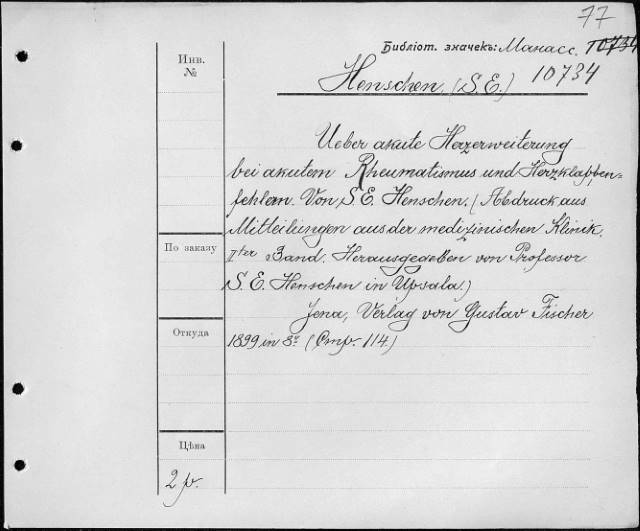 77
Библіот. значекъ: Манасс. 10734
Инв.
№
10734
Henschen. (S.E.)
Ueber akute Hezerweiterung
bei akutem Rheumatismus und Herzklappen-
fehlern. Von S.E. Henschen. (Abdruck aus
Mitteilungen aus der medizinischen Klinik.
По заказу
IIter Band. Herausgegeben von Professor
S.E. Henschen in Upsala.)
Jena, Verlag von Gustav Fischer
Откуда
1899 in 8º (Стр. 114.)
Цѣна
2 р.